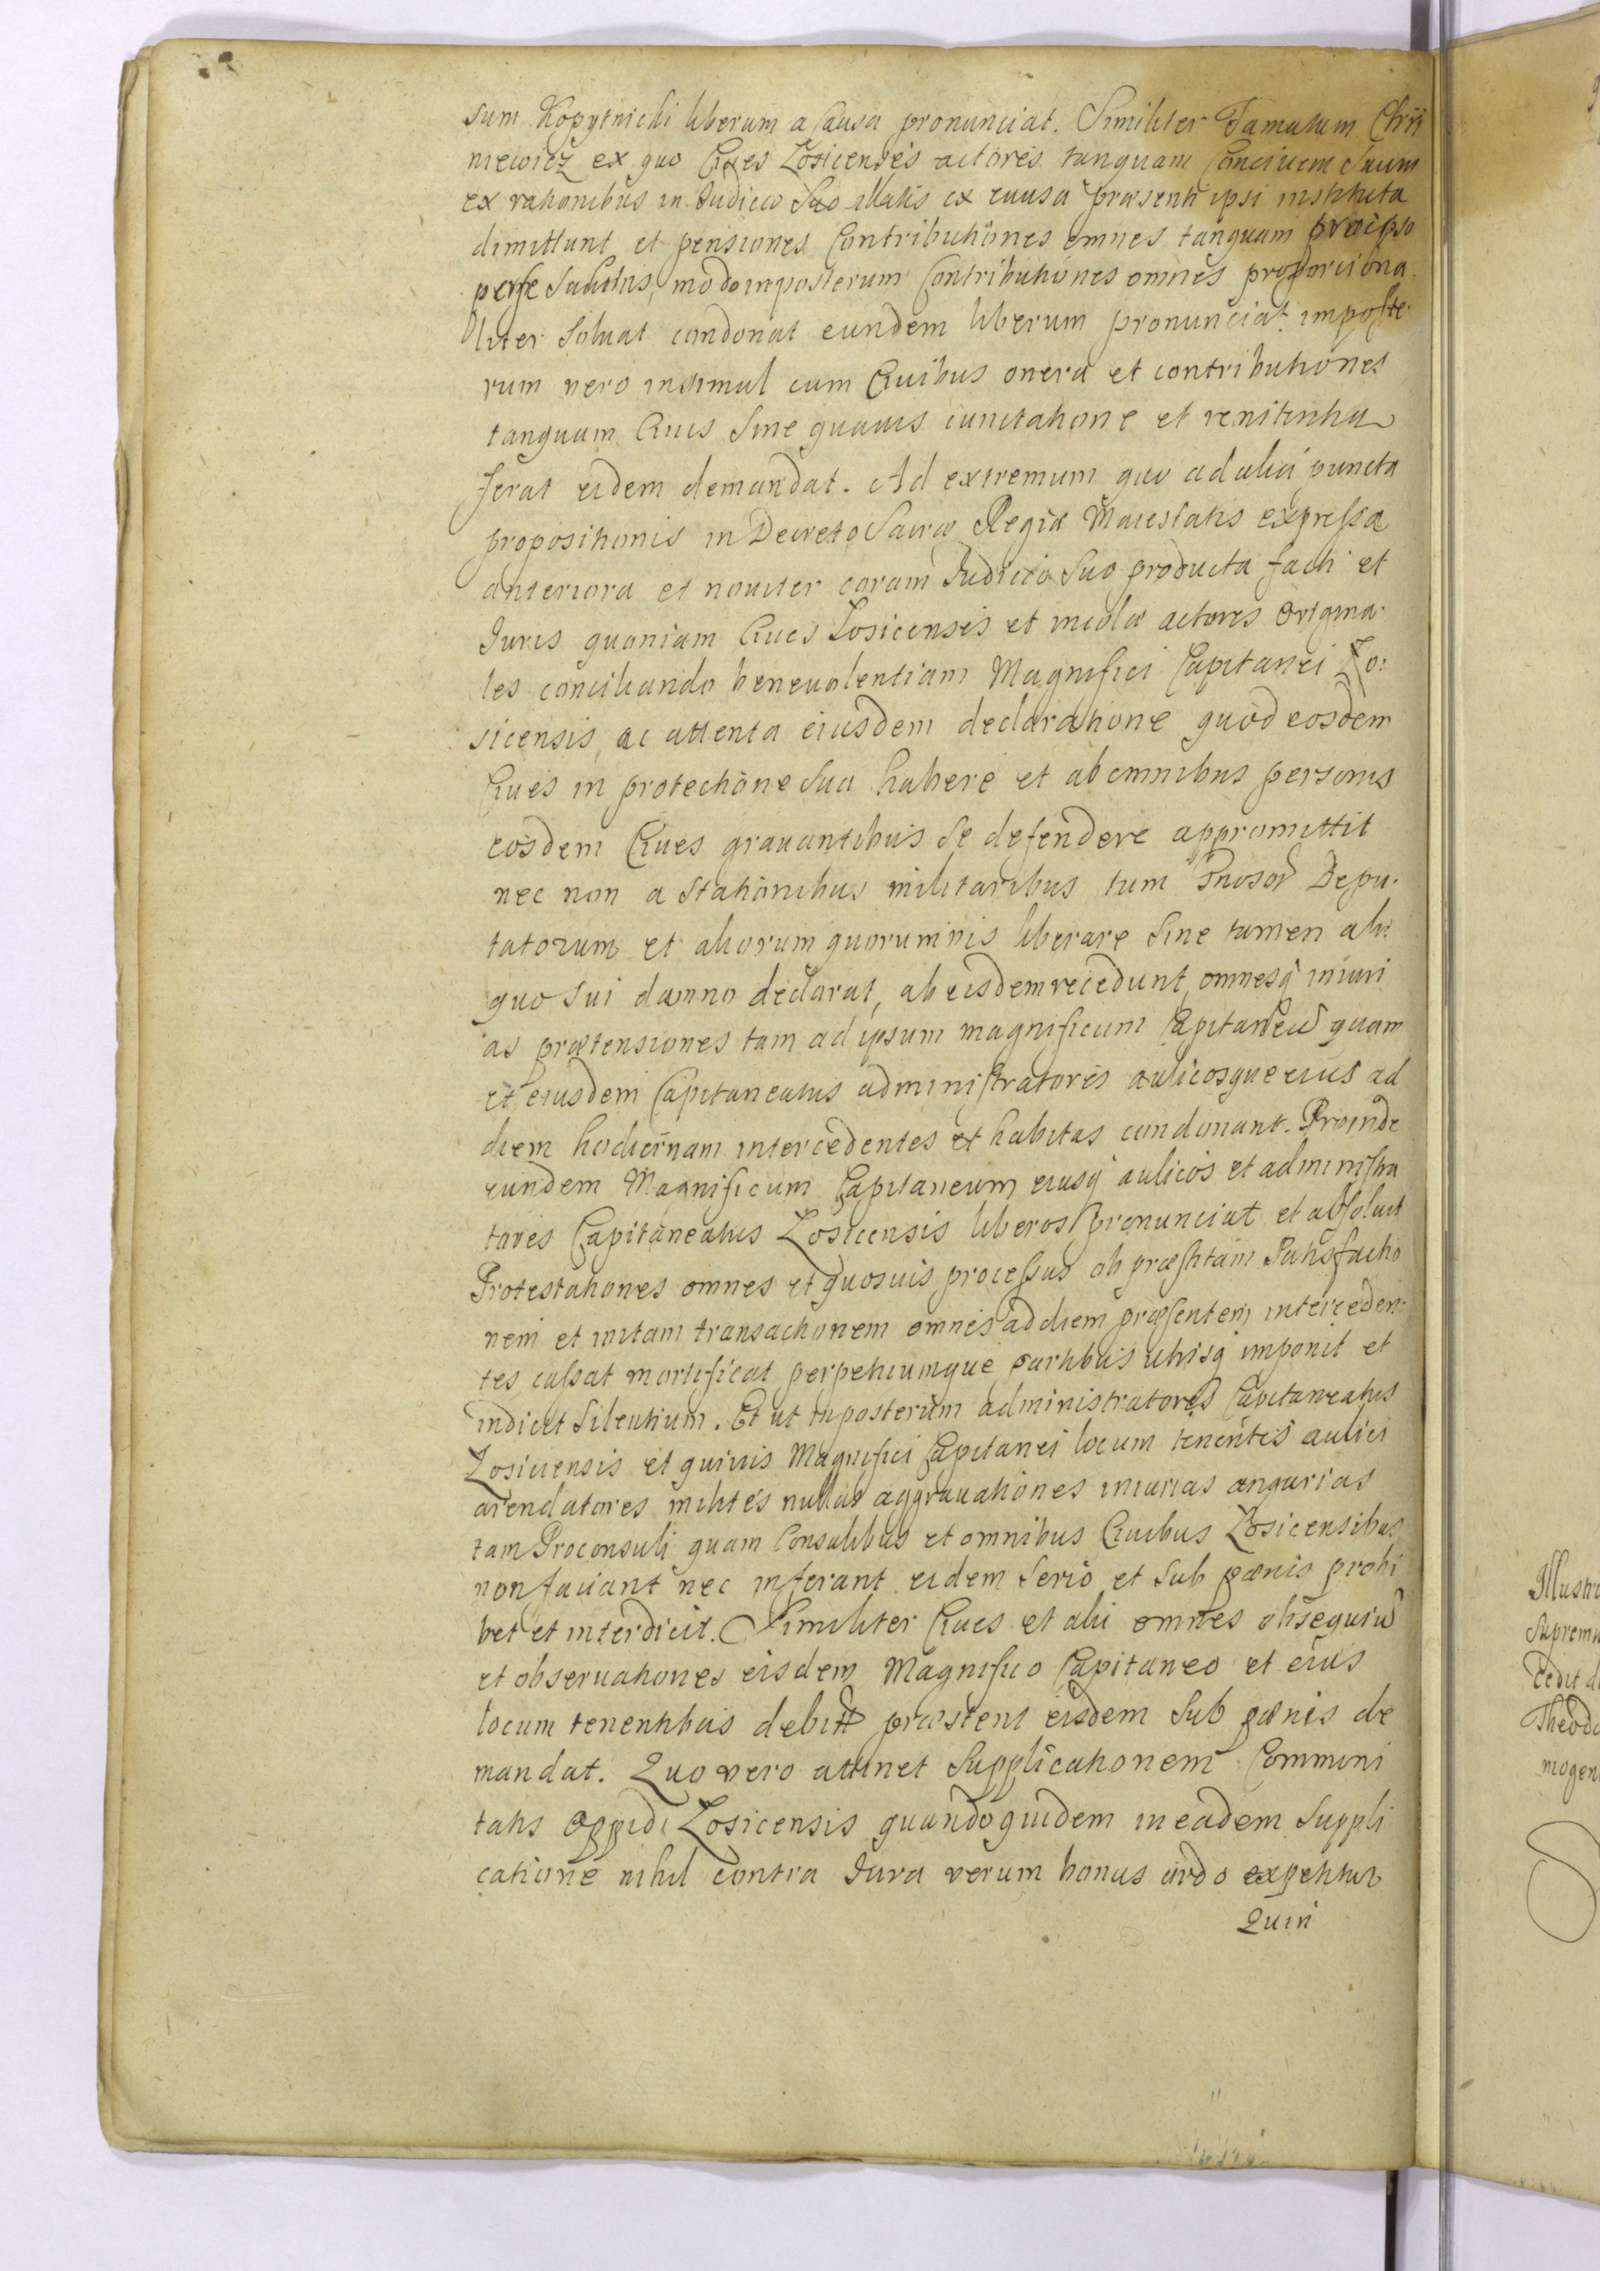 sum Kopytnicki liberum a Causa pronunciat. Similiter Famatum Chrÿ
niewicz ex quo Ciues Łosicenses actores tanquam Conciuem Suum
ex rationibus in Judicio Suo illatis ex causa præsenti ipsi instituta
dimittunt et pensiones Contributiones omnes tanquam pro ipso
perse Solutas, modo inposterum Contributiones omnes proporciona
liter Soluat condonat eundem liberum pronunciat imposte
rum vero insimul cum Ciuibus onera et contributiones
tanquam Ciuis Sine quauis cunctatione et renitentia
ferat eidem demandat. Ad extremum quo ad alia puncta
propositionis in Decreto Sacræ Regiæ Maiestatis expressa
anteriora et nouiter coram Judicio Suo producta facti et
Juris quoniam Ciues Losicenses et incolæ actores Origina
les conciliando beneuolentiam Magnifici Capitanei Lo:
sicensis, ac attenta eiusdem declaratione quod eosdem
Ciues in protectione Sua habere et ab omnibus personis
eosdem Ciues grauantibus Se defendere appromittit
nec non a Stationibus militaribus tum Deputatorum
tatorum et aliorum quorumuis liberare Sine tamen ali
quo Sui damno declarat, ab eisdem recedunt, omnesq iniuri
as prætensiones tam ad ipsum magnificum Capitaneu quam
et eiusdem Capitaneatus administratores aulicosque eius ad
diem hodiernam intercedentes et habitas condonant. Proinde
eundem Magnificum Capitaneum eiusq aulicos et administra
tores Capitaneatus Losicensis liberos pronunciat et absoluit
Protestationes omnes et quosuis processus ob præstitam Satisfactio
nem et initam transactionem omnes ad diem præsentem interceden:
tes cassat mortificat perpetuumque partibus utrisq imponit et
indicit Silentium. Et ut inposterum administratores Capitaneatus
Losicensis et quiuis Magnifici Capitanei locum tenentes aulici
arendatores milites nullas aggrauationes iniurias angarias
tam Proconsuli quam Consulibus et omnibus Ciuibus Losicensibus
non faciant nec inferant eidem Serio et Sub pœnis prohi
bet et interdicit. Similiter Ciues et alii omnes obsequiu
et obseruationes eisdem Magnifico Capitaneo et eius
locum tenentibus præstent eisdem Sub pœnis de
mandat. Quo vero attinet Supplicationem Communi
tatis Oppidi Losicensis quandoquidem in eadem Suppli
catione nihil contra Jura verum bonus ordo expetitur
Quin
Illustri
Supremu
cedit d
Theodo
mogen